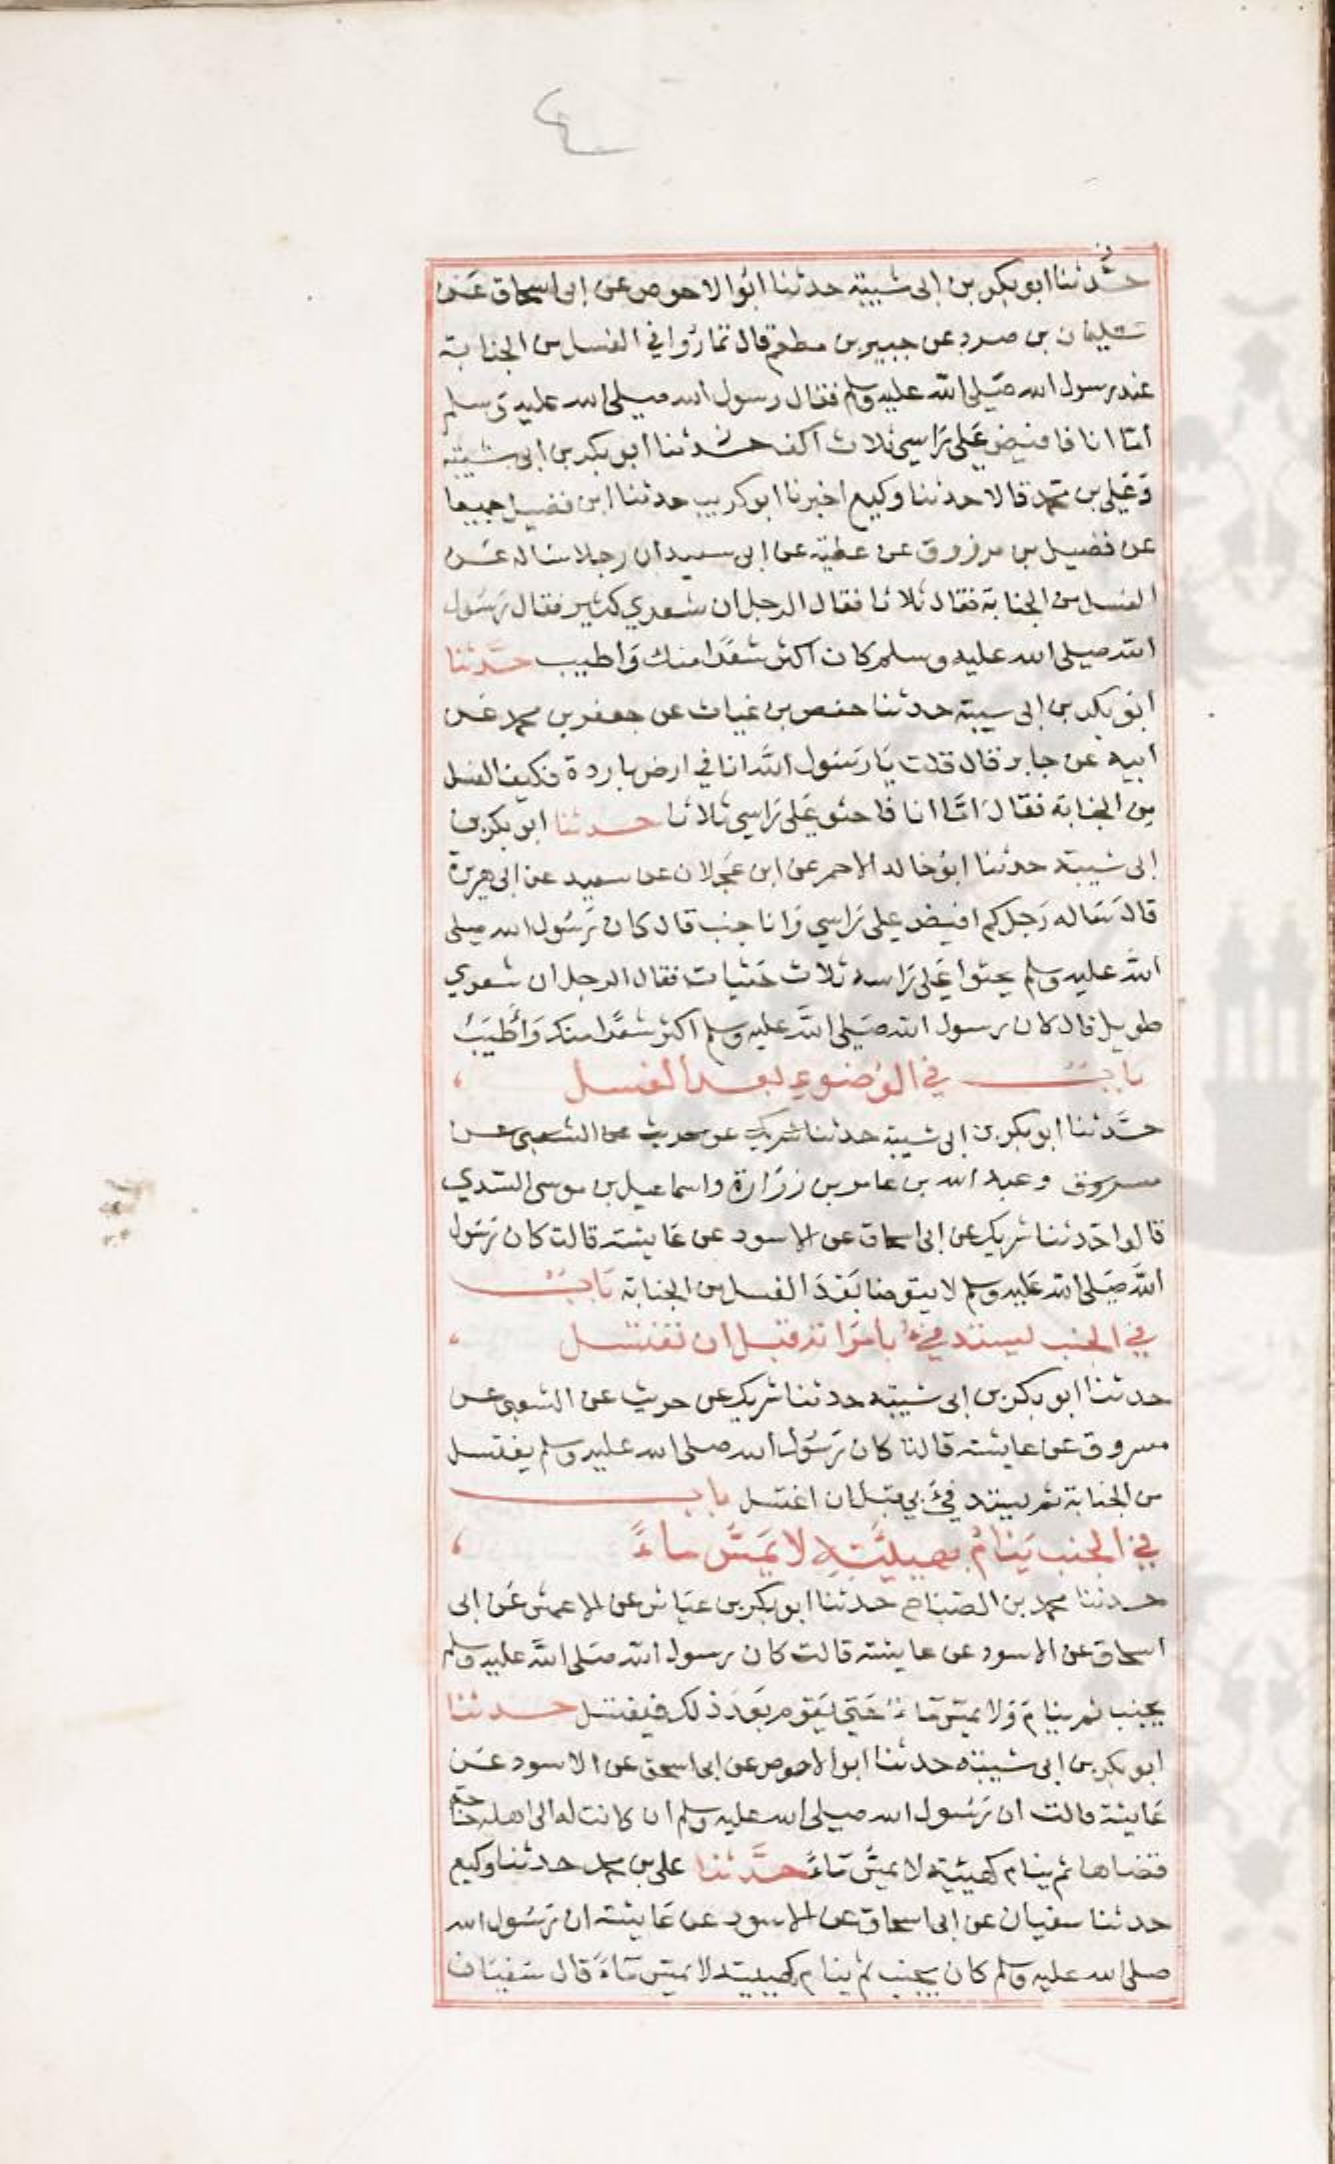 حدثنا ابو بكر بن ابى شيبة حدثنا ابوا الاحوص عن ابى اسحاق عن
سليمان بن صرد عن جبير بن مطعم قال تماروا في الغسل من الجنابة
عند رسول الله صلى الله عليه وسلم فقال رسول الله صلى الله عليه وسلم
امّا انا فافيض على راسي ثلاث اكف حدثنا ابو بكر بن ابى شيبة
وعلي بن محمد قالا حدثنا وكيع اخبرنا ابو كريب حدثنا ابن فضيل جميعا
عن فضيل بن مرزوق عن عطية عن ابى سعيد ان رجلا ساله عن
الغسل من الجنابة فقال ثلاثا فقال الرجل ان شعري كثير فقال رسول
الله صلى الله عليه وسلم كان اكثر شعرا منك واطيب حدثنا
ابو بكر بن ابى شيبة حدثنا حفص بن غياث عن جعفر بن محمد عن
ابيه عن جابر قال قلت يا رسول الله انا في ارض باردة فكيف الغسل
من الجنابة فقال امّا انا فاحثو على راسي ثلاثا حدثنا ابو بكر بن
ابى شيبة حدثنا ابو خالد الاحمر عن ابن عجلان عن سعيد عن ابى هريرة
قال ساله رجل كم افيض على راسي وانا جنب قال كان رسول الله صلى
الله عليه وسلم يحثوا على راسه ثلاث حثيات فقال الرجل ان شعري
طويل قال كان رسول الله صلى الله عليه وسلم اكثر شعرا منك وأطيب
باب في الوضوء بعد الغسل
حدثنا ابو بكر بن ابى شيبة حدثنا شريك عن حريث عن الشعبى عن
مسروق وعبد الله بن عامر بن زرارة واسماعيل بن موسى السدي
قالوا حدثنا شريك عن ابى اسحاق عن الاسود عن عايشة قالت كان رسول
الله صلى الله عليه وسلم لا يتوضا بعد الغسل من الجنابة باب
في الجنب يستدفيء بامراته قبل ان تغتسل
حدثنا ابو بكر بن ابى شيبة حدثنا شريك عن حريث عن الشعبى عن
مسروق عن عايشة قالتا كان رسول الله صلى الله عليه وسلم يغتسل
من الجنابة ثم يستدفئ بي قبل ان اغتسل باب
في الجنب ينام بهيئته لا يمس ماءً
حدثنا محمد بن الصباح حدثنا ابو بكر بن عياش عن الاعمش عن ابى
اسحاق عن الاسود عن عايشة قالت كان رسول الله صلى الله عليه وسلم
يجنب ثم ينام ولا يمس ماءً حتى يقوم بعد ذلك فيغتسل حدثنا
ابو بكر بن ابى شيبة حدثنا ابوا الاحوص عن ابى اسحق عن الاسود عن
عايشة قالت ان رسول الله صلى الله عليه وسلم ان كانت له الى اهله حاجة
قضاها ثم ينام كهيئته لا يمس ماءً حدثنا علي بن محمد حدثنا وكيع
حدثنا سفيان عن ابى اسحاق عن الاسود عن عايشة ان رسول الله
صلى الله عليه وسلم كان يجنب ثم ينام كهييته لا يمس ماءً قال سفيان